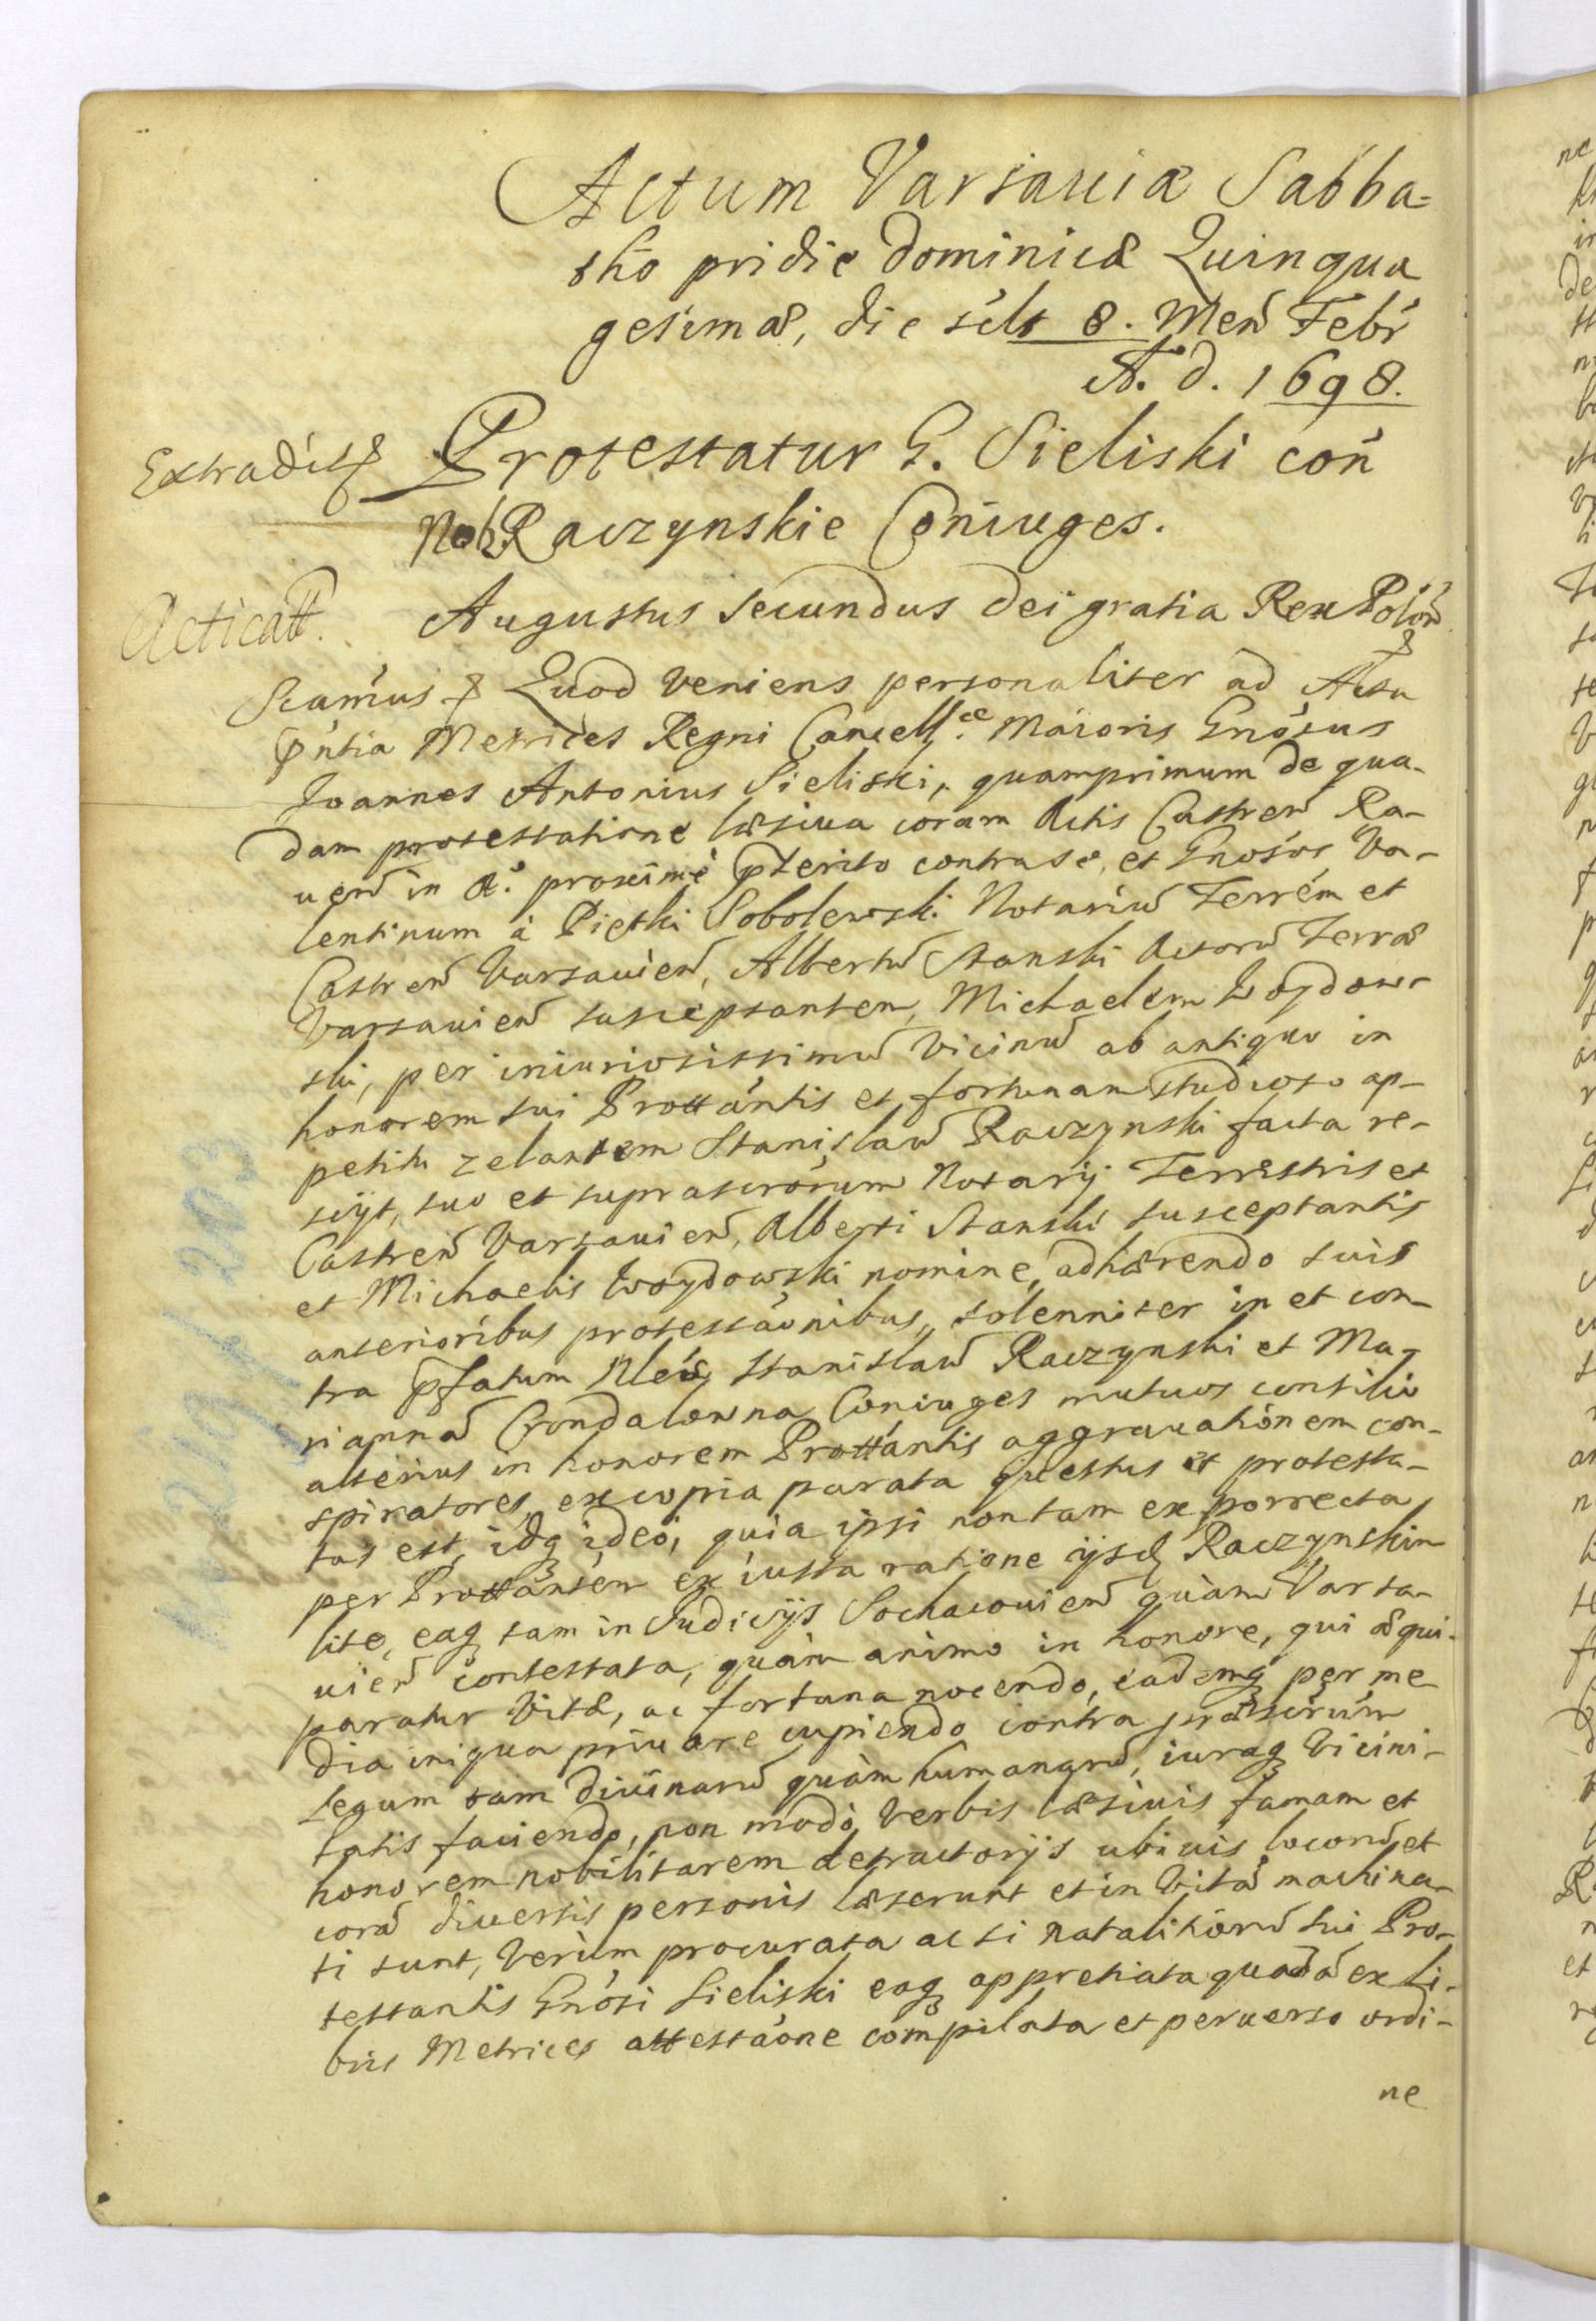 Actum Varsauiæ Sabba-
tho pridie Dominicæ Quinqua
gesimæ, die sclt 8. Men Febr
A. D. 1698.
Extradit
Protestatur G. Sieliski con
Nob. Raczynskie Coniuges.
Acticatt.
Augustus Secundus Dei gratia Rex Polon
Scamus Quod veniens personaliter ad Acta
pntia Metrices Regni Cancell.æ Maioris Gnosus
Joannes Antonius Sieliski, quamprimum de qua-
dam protestatione læsiua coram Actis Castren Ra-
uen in A.o proxime pterito contra se, et Gnosos Va-
lentinum à Pietki Sobolewski Notariu Terrem et
Castren Varsauien, Albertu Stanski Actoru Terræ
Varsauien susceptantem, Michaelem Woydow-
ski, per iniuriosissimu Vicinu ab antiquo in
honorem sui Prottantis et fortunam studioso ap-
petitu zelantem Stanislau Raczynski facta re-
sciyt, suo et suprascrorum Notarij Terrestris et
Castren Varsauien, Alberti Stanski susceptantis
et Michaelis Woydowski nomine, adhærendo suis
anterioribus protestaonibus, solenniter in et con-
tra pfatum Stanislau Raczynski et Ma-
rianna Coniuges mutuos consilio
alterius in honorem Prottantis aggrauationem con-
spiratores, ex copia parata questus et protesta-
tus est, idq ideo, quia ipsi non tam ex porrecta
per Prottantem ex iusta ratione ijsd Raczynskim
lite, eaq tam in Judicijs Sochacouien quàm Varsa-
uien contestata, quàm animo in honore, qui æqui-
paratur vitæ, ac fortuna nocendo, eademq per me-
dia iniqua priuare cupiendo contra præscrum
Legum tam diuinaru quàm humanaru, iuraq Vicini-
tatis faciendo, non modò verbis læsiuis famam et
honorem nobilitarem detractorijs ubiuis locoru et
cora diuersis personis læserunt et in vita machina-
ti sunt, verùm procurata ac si natalitioru sui Pro-
testantis Gnosi Sieliski eaq appretiata quada ex Li-
bris Metrices attestaone compilata et peruerso ordi-
ne